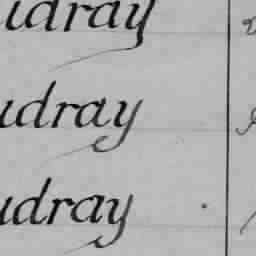 udray
udray
udray